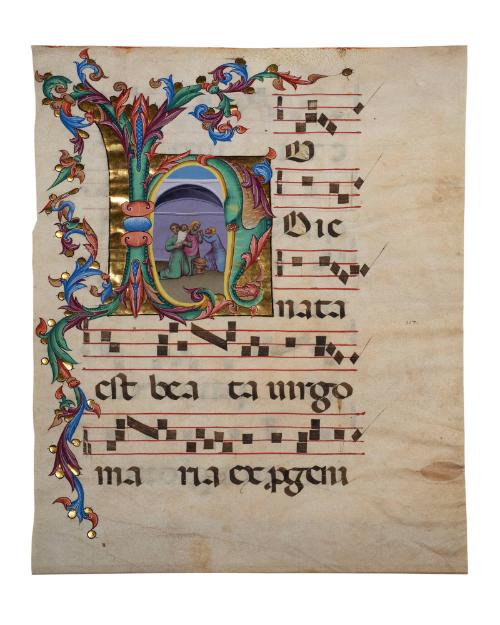 HO
Die
nata
est bea ta uirgo
ma ria ex ꝓgeni